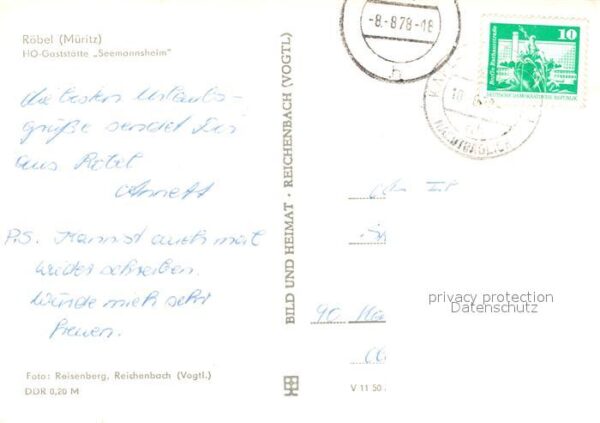 Röbel (Müritz)
HO-Gaststätte „Seemannsheim"
Die besten Urlaubs-
grüße sendet Dir
aus Röbel
Annett
P.S. Kannst auch mal
wieder schreiben.
Würde mich sehr
freuen.
Foto: Reisenberg, Reichenbach (Vogtl.)
DDR 0,20 M
BILD UND HEIMAT · REICHENBACH (VOGTL)
-8.-8.78-18
b
10
DEUTSCHE DEMOKRATISCHE REPUBLIK
90
privacy protection
Datenschutz
V 11 50